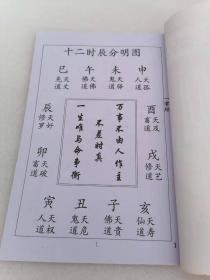 十二时辰分明图
巳 午 未 申
天文
天福
佛道
天驿
鬼道
天孤
人道
辰
天奸
修罗
酉
畜道
万事不由人作主
不差时真
一生唯与命争衡
卯
天破
畜道
戌
天艺
修道
寅 丑 子 亥
天权
人道
天厄
鬼道
天贵
佛道
天寿
仙道
1